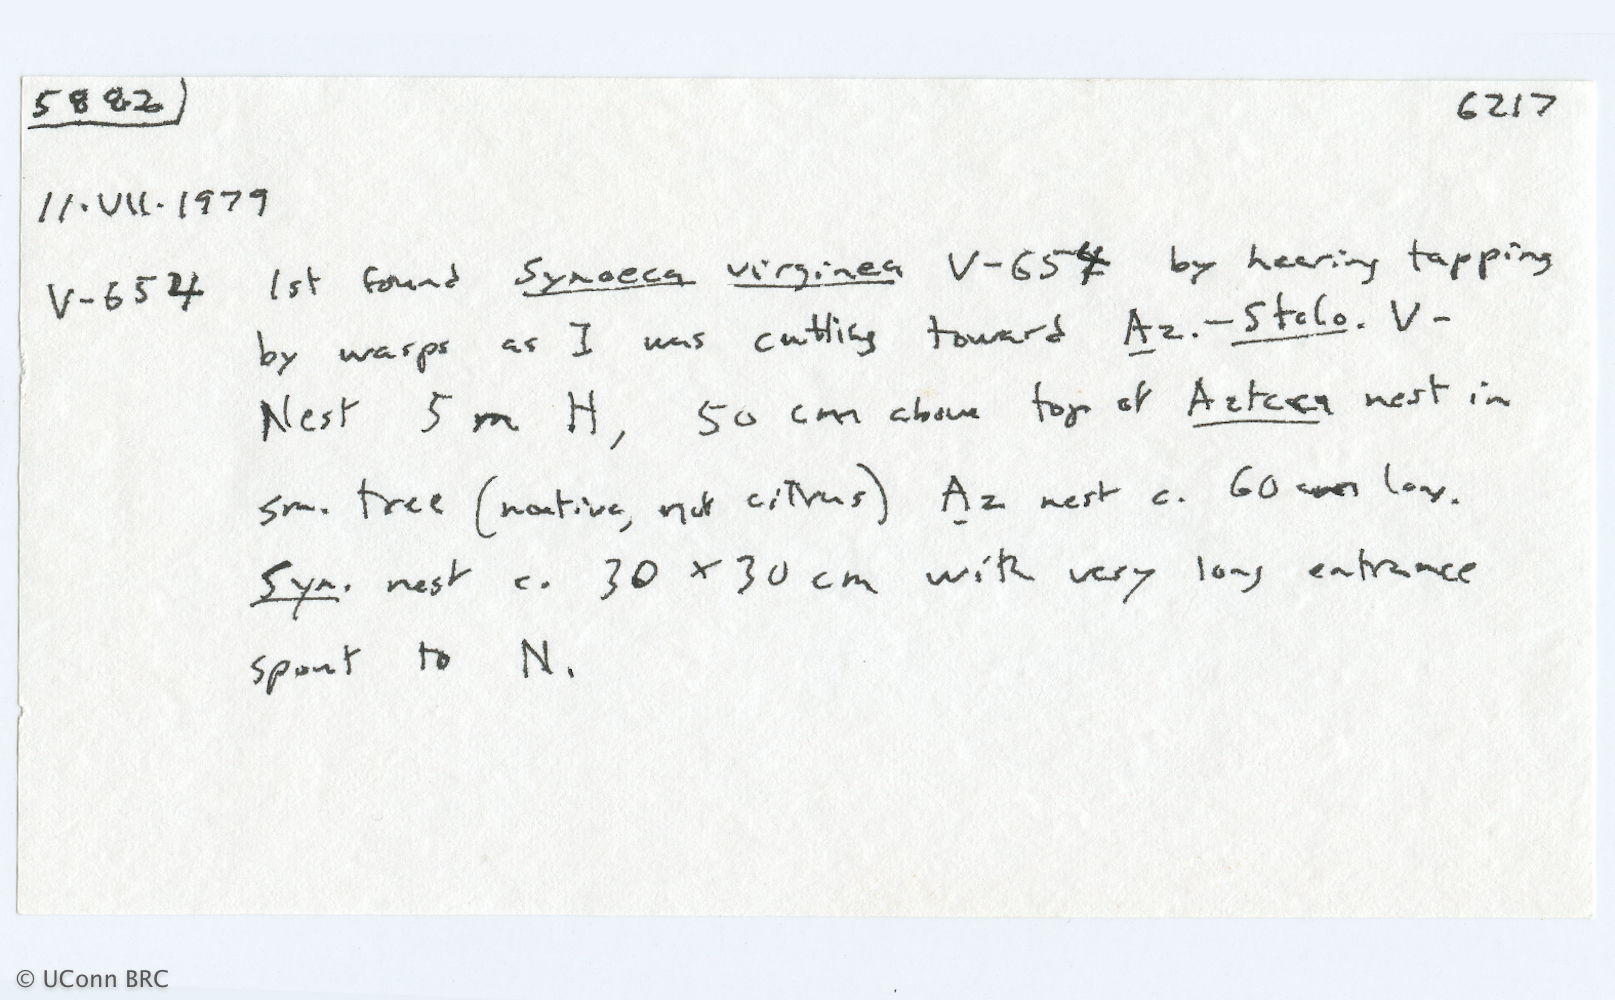 5882 6217
11.VII.1979
V-654 1st found Synoeca virginea V-654 by hearing tapping
by wasps as I was cutting toward Az.-Stelo. V-
Nest 5 m H, 50 cm above top of Azteca nest in
sm. tree (native, not citrus) Az nest c. 60 cm long.
Syn. nest c. 30 x 30 cm with very long entrance
spout to N.
© UConn BRC